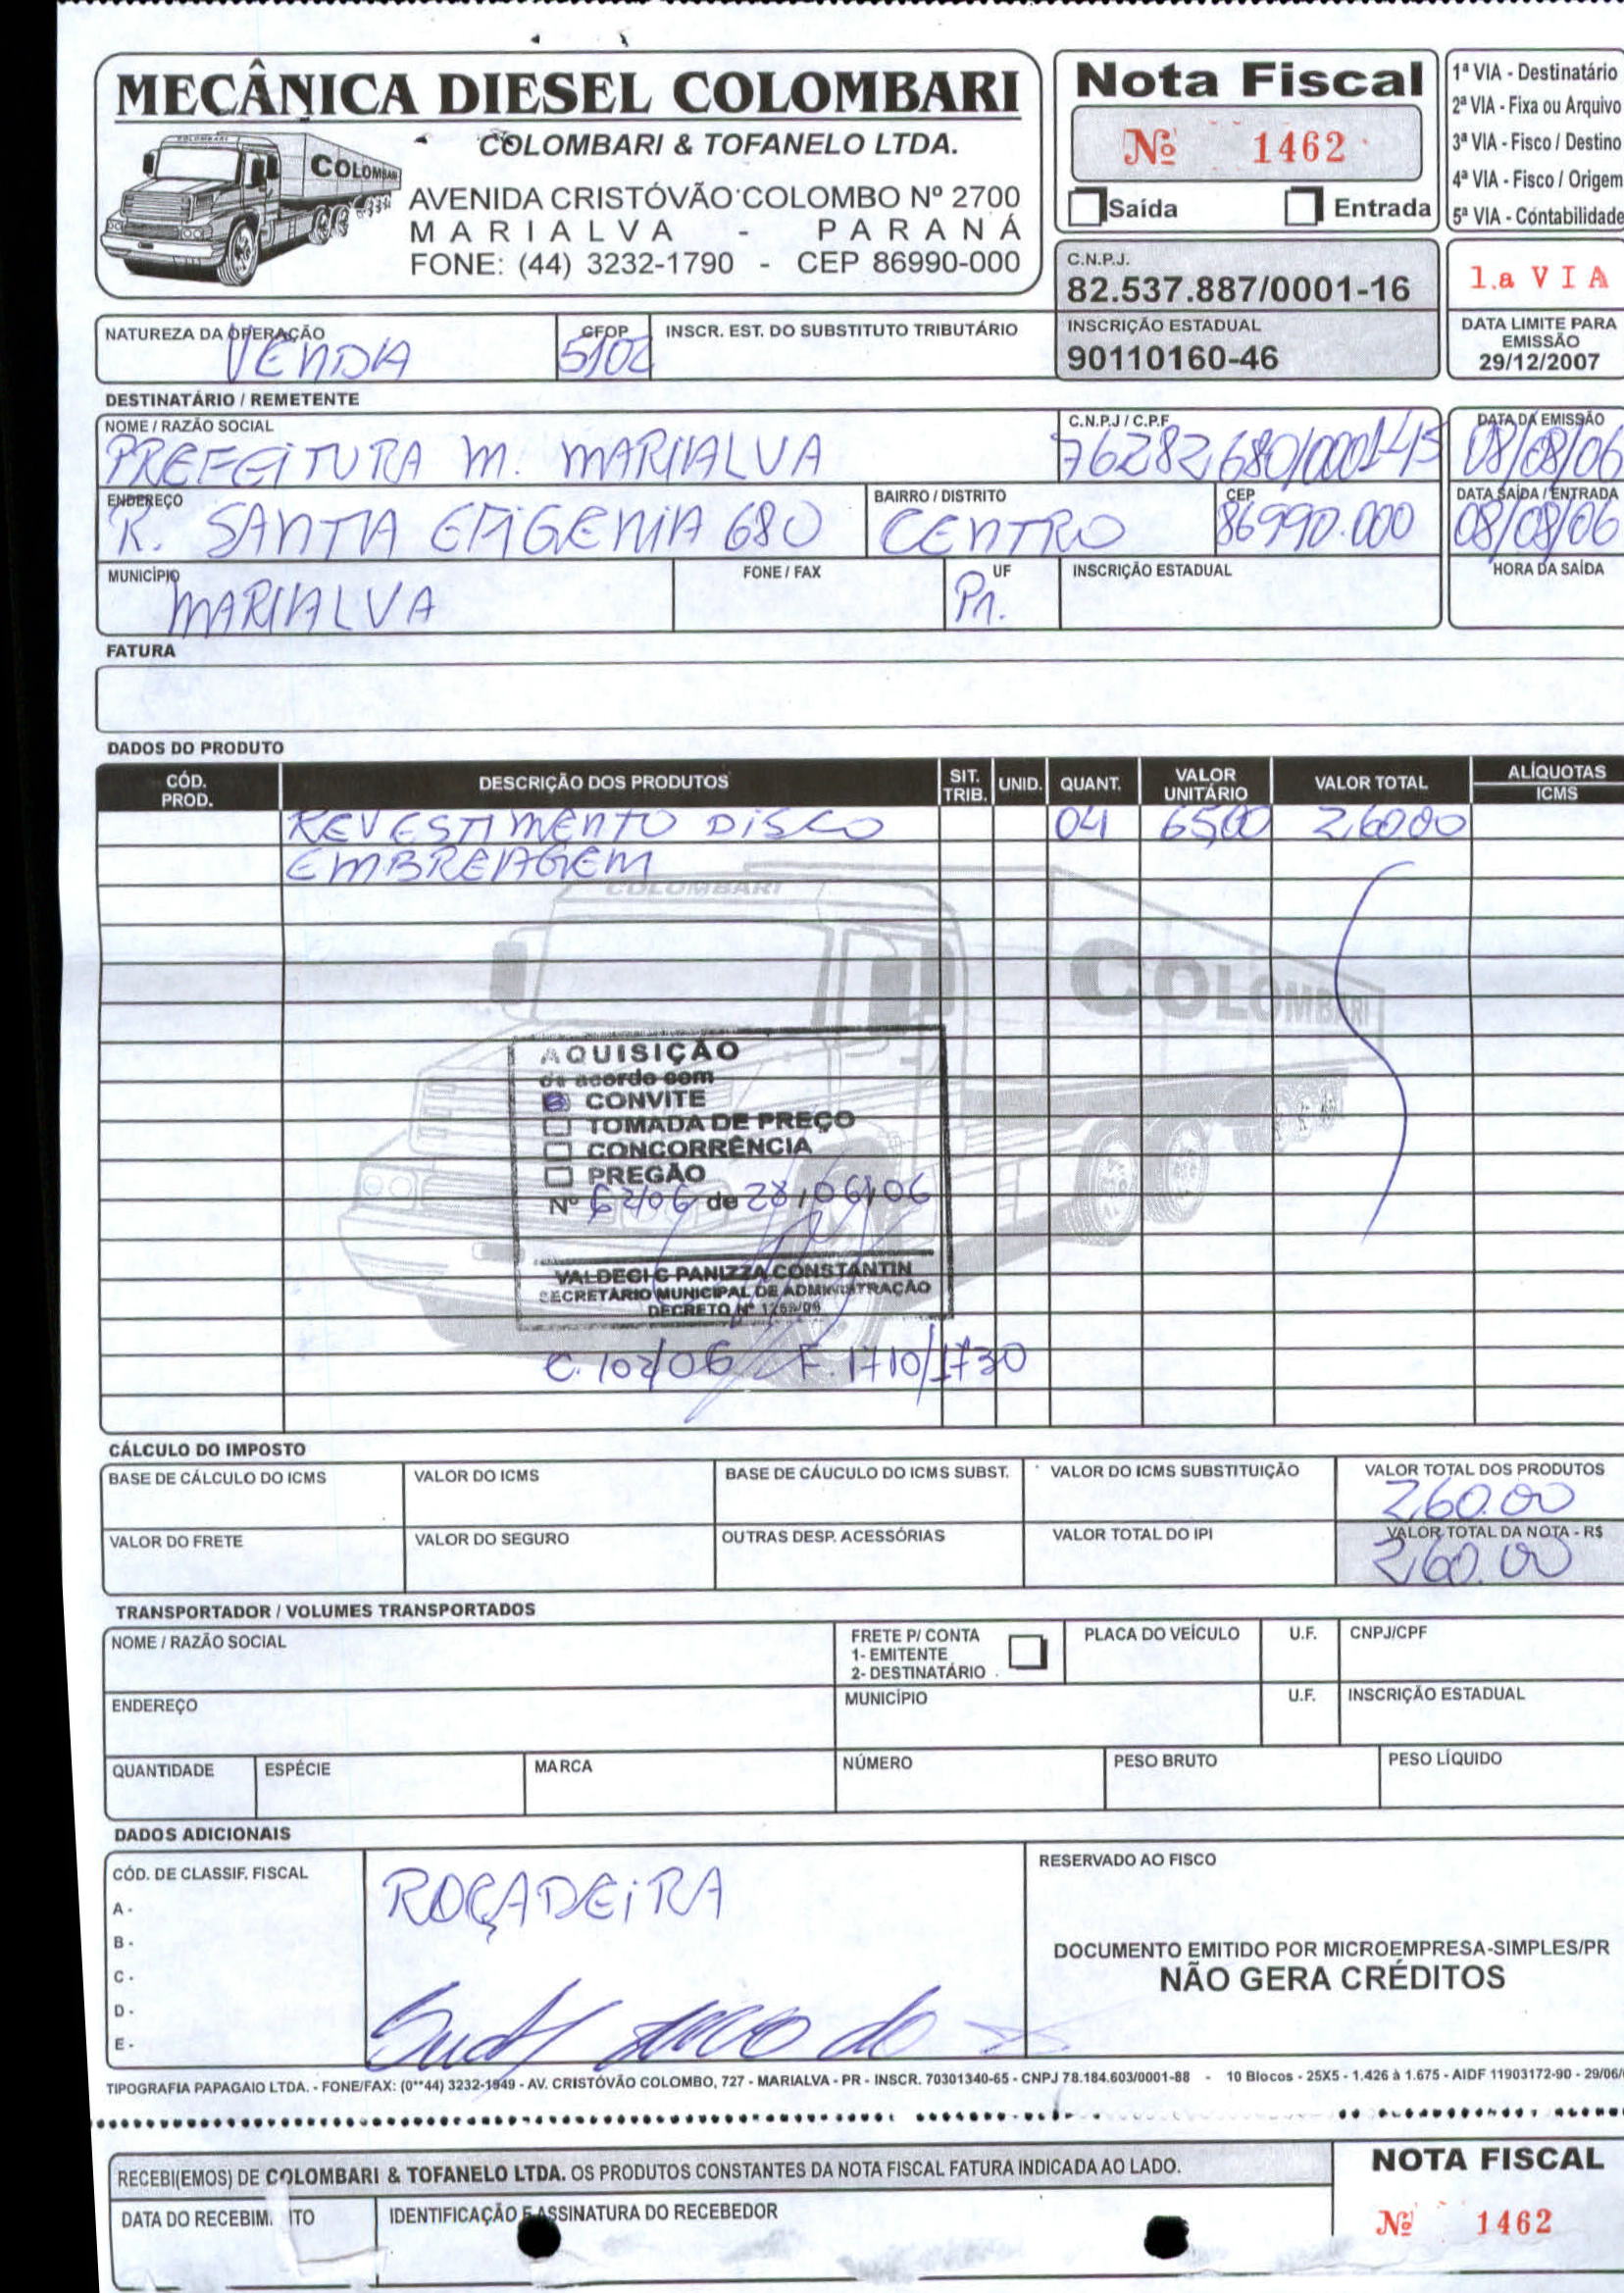 MECÂNICA DIESEL COLOMBARI
COLOMBARI & TOFANELO LTDA.
COLOMBARI
AVENIDA CRISTÓVÃO COLOMBO Nº 2700
MARIALVA - PARANÁ
FONE: (44) 3232-1790 - CEP 86990-000
Nota Fiscal
Nº 1462
Saída Entrada
1ª VIA - Destinatário
2ª VIA - Fixa ou Arquivo
3ª VIA - Fisco / Destino
4ª VIA - Fisco / Origem
5ª VIA - Contabilidade
C.N.P.J.
82.537.887/0001-16
1.a VIA
INSCRIÇÃO ESTADUAL
90110160-46
DATA LIMITE PARA
EMISSÃO
29/12/2007
NATUREZA DA OPERAÇÃO CFOP INSCR. EST. DO SUBSTITUTO TRIBUTÁRIO
VENDA 5102
DESTINATÁRIO / REMETENTE
NOME / RAZÃO SOCIAL C.N.P.J / C.P.F DATA DA EMISSÃO
PREFEITURA M. MARIALVA 76282680/000145 08/08/06
ENDEREÇO BAIRRO / DISTRITO CEP DATA SAÍDA / ENTRADA
R. SANTA EFIGENIA 680 CENTRO 86990.000 08/08/06
MUNICÍPIO FONE / FAX UF INSCRIÇÃO ESTADUAL HORA DA SAÍDA
MARIALVA Pr.
FATURA
DADOS DO PRODUTO
CÓD. PROD. DESCRIÇÃO DOS PRODUTOS SIT. TRIB. UNID. QUANT. VALOR UNITÁRIO VALOR TOTAL ALÍQUOTAS ICMS
REVESTIMENTO DISCO 04 65,00 260.00
EMBREAGEM
COLOMBARI
COLOMBARI
AQUISIÇÃO
de acordo com
CONVITE
TOMADA DE PREÇO
CONCORRÊNCIA
PREGÃO
Nº 62/06 de 28/06/06
VALDECI C PANIZZA CONSTANTIN
SECRETÁRIO MUNICIPAL DE ADMINISTRAÇÃO
DECRETO Nº
C. 102/06 F. 1710/1730
CÁLCULO DO IMPOSTO
BASE DE CÁLCULO DO ICMS VALOR DO ICMS BASE DE CÁUCULO DO ICMS SUBST. VALOR DO ICMS SUBSTITUIÇÃO VALOR TOTAL DOS PRODUTOS
260.00
VALOR DO FRETE VALOR DO SEGURO OUTRAS DESP. ACESSÓRIAS VALOR TOTAL DO IPI VALOR TOTAL DA NOTA - R$
260.00
TRANSPORTADOR / VOLUMES TRANSPORTADOS
NOME / RAZÃO SOCIAL FRETE P/ CONTA PLACA DO VEÍCULO U.F. CNPJ/CPF
1- EMITENTE
2- DESTINATÁRIO
ENDEREÇO MUNICÍPIO U.F. INSCRIÇÃO ESTADUAL
QUANTIDADE ESPÉCIE MARCA NÚMERO PESO BRUTO PESO LÍQUIDO
DADOS ADICIONAIS
CÓD. DE CLASSIF. FISCAL RESERVADO AO FISCO
ROÇADEIRA
A -
B -
C -
D -
E -
DOCUMENTO EMITIDO POR MICROEMPRESA-SIMPLES/PR
NÃO GERA CRÉDITOS
TIPOGRAFIA PAPAGAIO LTDA. - FONE/FAX: (0**44) 3232-1949 - AV. CRISTÓVÃO COLOMBO, 727 - MARIALVA - PR - INSCR. 70301340-65 - CNPJ 78.184.603/0001-88 - 10 Blocos - 25X5 - 1.426 à 1.675 - AIDF 11903172-90 - 29/06/
RECEBI(EMOS) DE COLOMBARI & TOFANELO LTDA. OS PRODUTOS CONSTANTES DA NOTA FISCAL FATURA INDICADA AO LADO.
NOTA FISCAL
DATA DO RECEBIM. TO IDENTIFICAÇÃO E ASSINATURA DO RECEBEDOR
Nº 1462